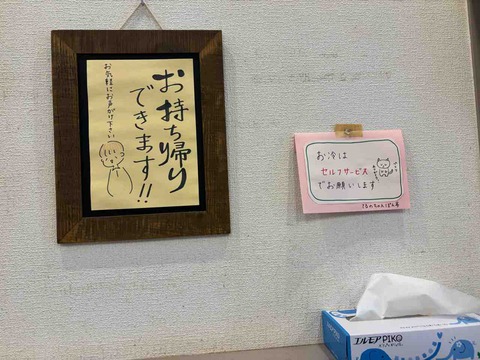 お持ち帰り
できます!!
お気軽にお声がけ下さい
お冷は
セルフサービス
でお願いします
エルモア PiKO